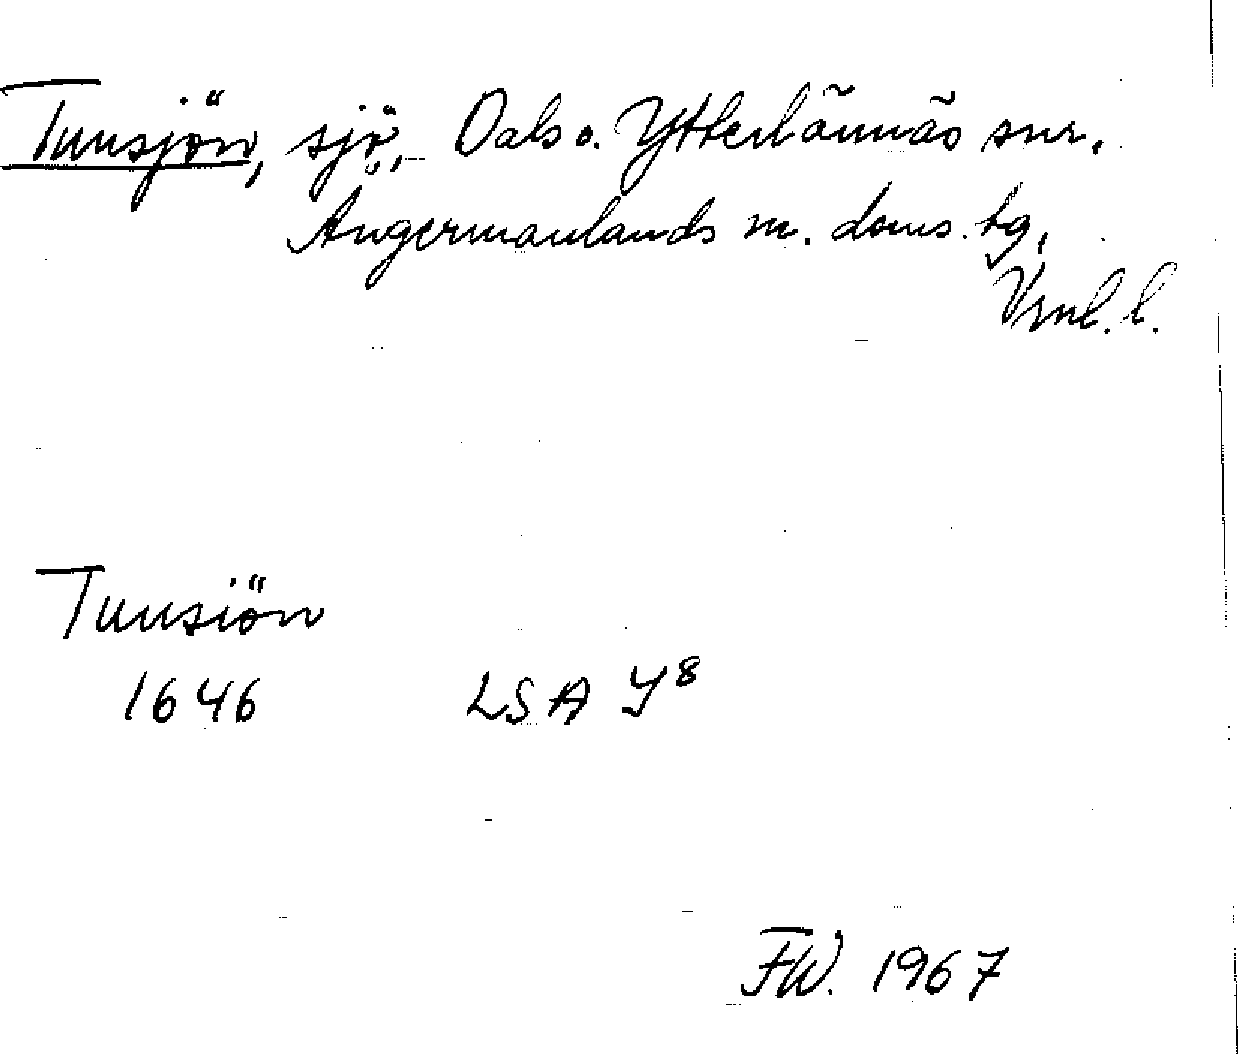 Tunsjön, sjö, Dals o. Ytterlännäs snr.
Ångermanlands m. doms. tg,
Vrnl. l.
Tunsiön
1646 LSA Y8
FW. 1967